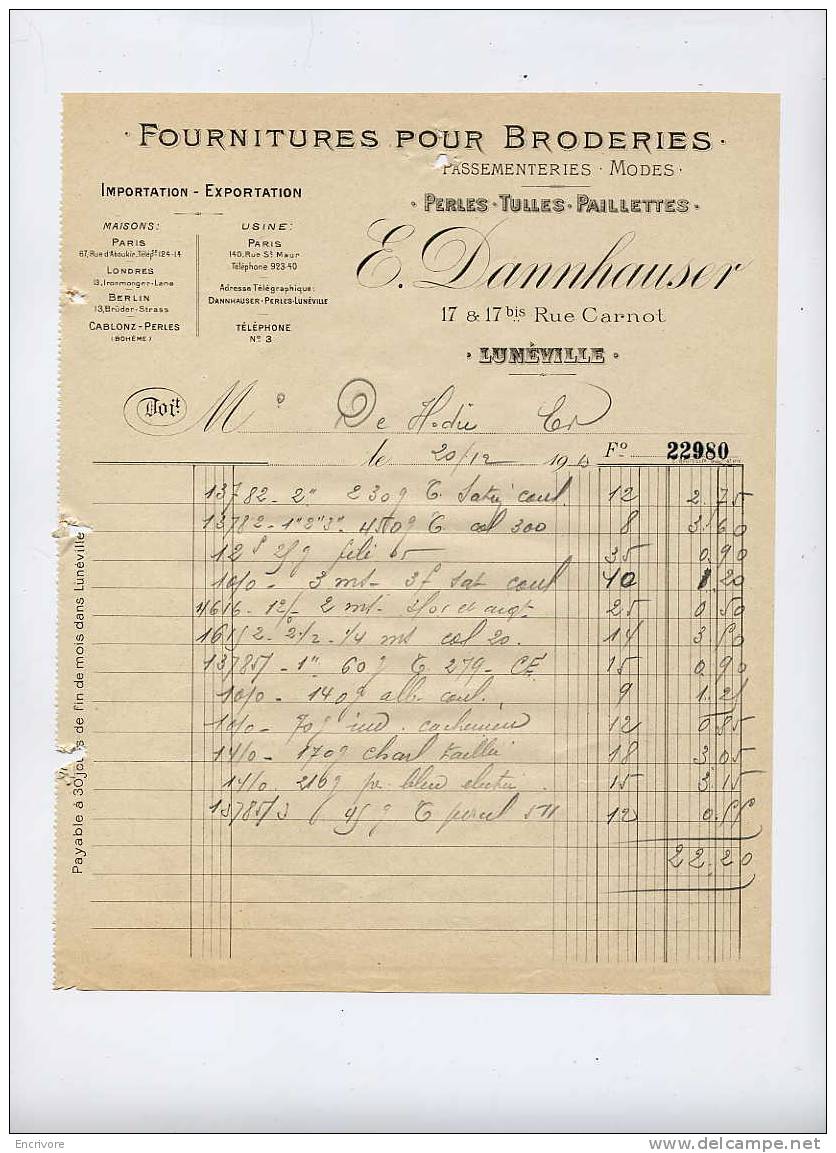 · FOURNITURES POUR BRODERIES ·
PASSEMENTERIES · MODES ·
· PERLES · TULLES · PAILLETTES ·
E. Dannhauser
17 & 17 bis Rue Carnot
· LUNÉVILLE ·
IMPORTATION - EXPORTATION
MAISONS:
PARIS
67, Rue d'Aboukir, Téléph. 124-14
LONDRES
13, Ironmonger-Lane
BERLIN
13, Brüder-Strass
CABLONZ-PERLES
(BOHÊME)
USINE:
PARIS
140, Rue St Maur
Téléphone 923-40
Adresse Télégraphique:
DANNHAUSER-PERLES-LUNÉVILLE
TÉLÉPHONE
No 3
Doit M De
le 20/12 19 Fo 22980
13782 - 2" 230g C. 12 2.75
13782 - 1"2"3" 450g C col 300 8 3.60
12 filé or 35 0.90
10/0 - 3 ms - 3f sat coul 10 1.20
2 ms or et argt 25 0.50
2 1/2 - 1/4 ms col 20. 14 3.50
13785/ - 1" 60g C. 279 - CE 15 0.90
10/0 - 140g alb. coul. 9 1.25
10/0 - 70g ind. cachemire 12 0.85
14/0 - 170g charl 18 3.05
14/0. 210g bleu 15 3.15
13785/3 45g C 511 12 0.55
22.20
Payable à 30 jours de fin de mois dans Lunéville
Encrivore
www.delcampe.net